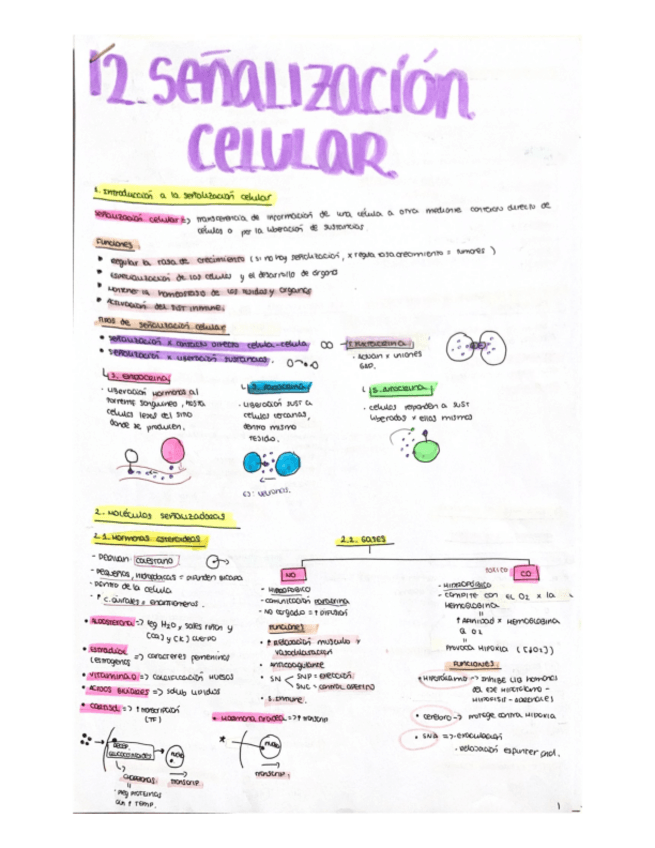 12. Señalización
celular
1. Introducción a la señalización celular
Señalización celular => transferencia de información de una célula a otra mediante contacto directo de
células o por la liberación de sustancias
Funciones
regular la tasa de crecimiento (si no hay señalización, x regula tasa crecimiento = tumores)
especialización de las células y el desarrollo de órganos
Mantener la homeostasis de los tejidos y órganos
Activación del sist inmune.
Tipos de señalización celular
señalización x contacto directo célula-célula
señalización x liberación sustancias.
1. Yuxtacrina
- Actúan x uniones
GAP.
2. Endocrina
- Liberación hormonas al
torrente sanguíneo, hasta
células lejos del sitio
donde se producen.
3. Paracrina
- Liberación sust a
células cercanas,
dentro mismo
tejido.
ej: neuronas.
5. Autocrina
- células responden a sust
liberadas x ellas mismas
2. Moléculas señalizadoras
2.1. Hormonas esteroideas
- Derivan colesterol
- Pequeñas, hidrofóbicas = difunden bicapa
- Dentro de la célula
- P C. quirales = enantiómeros.
Aldosterona => reg H2O, sales riñón y
(Ca) y (K) cuerpo
Estradiol => caracteres femeninos
(estrógenos)
Vitamina D => calcificación huesos
Ácidos biliares => solub lípidos
Cortisol => ↑ transcripción
(TF)
Recep.
glucocorticoides
núcleo
transcrip
chaperonas
reg proteínas
Hormona tiroidea => ↑ transcrip
núcleo
transcrip.
2.2. Gases
NO
- Hidrofóbico
- comunicación paracrina
- No cargado = ↑ difusión
Funciones
↑ Relajación músculo =
vasodilatación
Anticoagulante
SN
SNP = erección
SNC = control apetito
S. inmune.
tóxico
CO
- Hidrofóbico
- compite con el O2 x la
hemoglobina
↑ Afinidad x hemoglobina
q O2
provoca hipoxia
Funciones
Hipotálamo -> inhibe lib hormonas
del eje hipotálamo -
hipófisis - adrenales
cerebro -> protege contra hipoxia
SNP => eyaculación
1